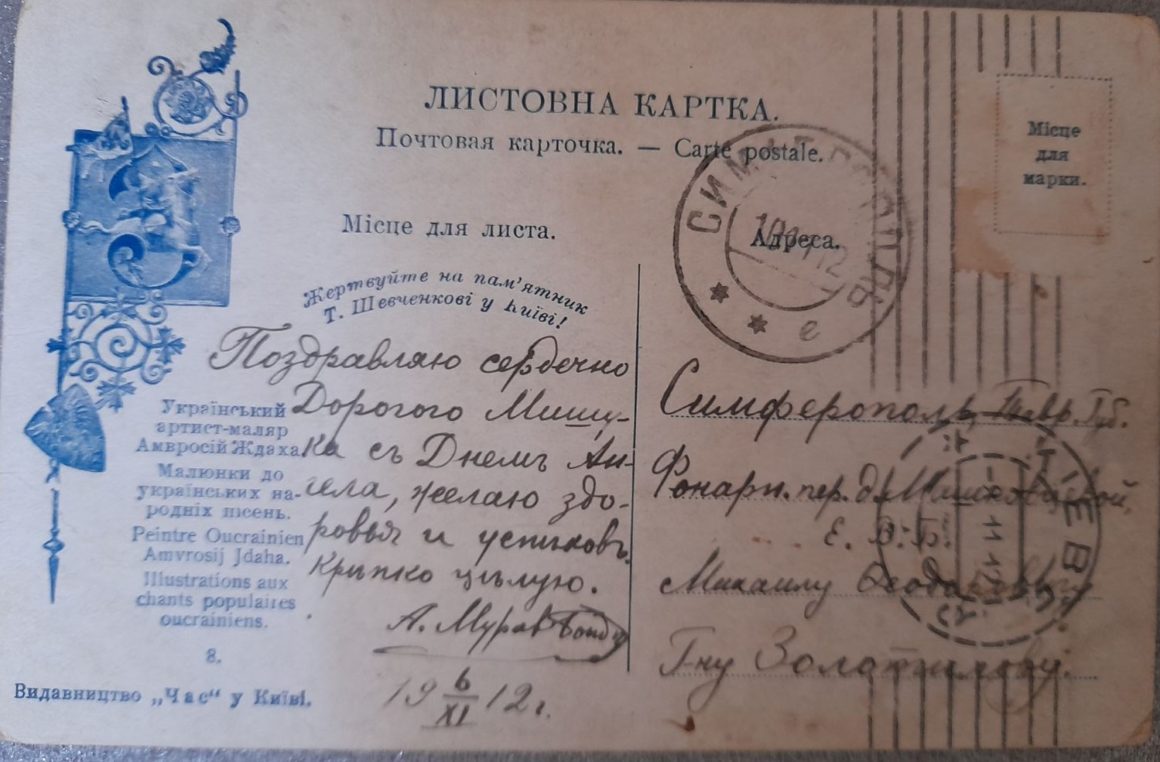 ЛИСТОВНА КАРТКА.
Почтовая карточка. — Carte postale.
Місце
для
марки.
Місце для листа.
Адреса.
Жертвуйте на пам'ятник
Т. Шевченкові у Київі!
Поздравляю сердечно
Дорогого Мишу-
ка съ Днемъ Ан-
гела, желаю здо-
ровья и успѣховъ.
Крѣпко цѣлую.
А.
19 6/XI 12 г.
Український
артист-маляр
Амвросій Ждаха
Малюнки до
українських на-
родніх пісень.
Peintre Oucrainien
Amvrosij Jdaha.
Illustrations aux
chants populaires
oucrainiens.
8.
Видавництво „Час“ у Київі.
СИМФЕРОПОЛЬ
е
Симферополь, Тавр. Губ.
Фонарн. пер. д.
Е. В. Б.
Михаилу
Г-ну
КІЕВЪ